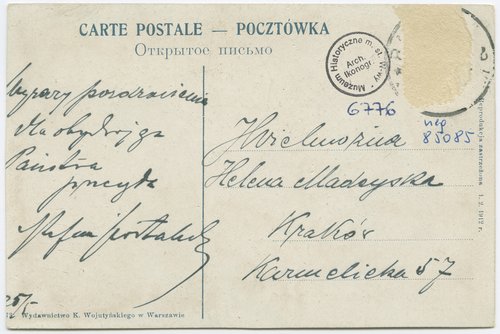 CARTE POSTALE — POCZTÓWKA
Открытое письмо
Muzeum Historyczne m. st. W-wy
Arch. Ikonogr.
6776
neg
85085
Wyrazy pozdrowienia
dla obydwojga
Państwa
przesyła
Stefan
JWielmożna
Helena Madeyska
Kraków
Karmelicka 57
Reprodukcja zastrzeżona 1. 2. 1912 r.
25/-
Wydawnictwo K. Wojutyńskiego w Warszawie